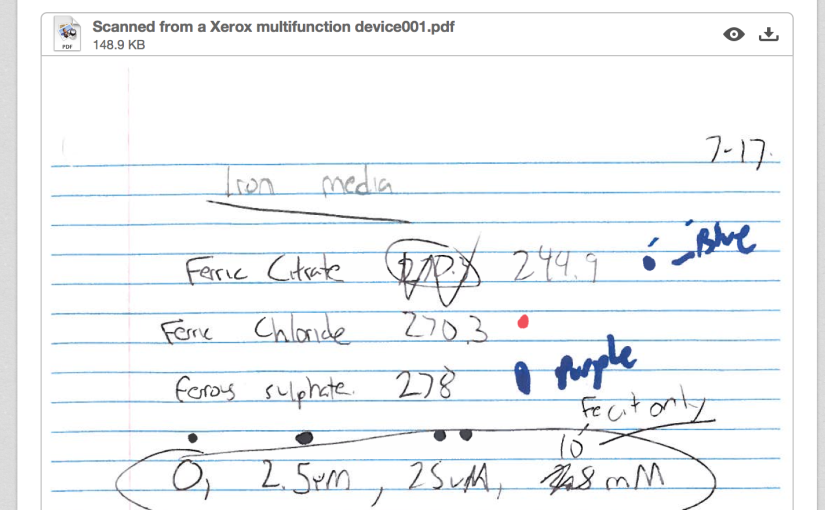 Scanned from a Xerox multifunction device001.pdf
PDF
148.9 KB
7-17
Iron media
Ferric Citrate 244.9 Blue
Ferric Chloride 270.3
ferous sulphate. 278 Purple
Fe cit only
10
0, 2.5uM, 25uM, mM